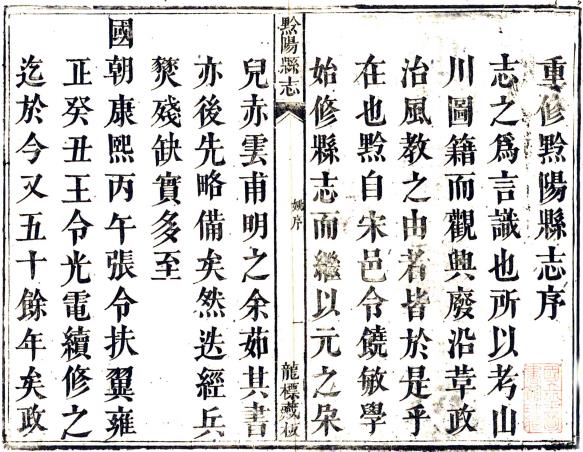 重修黔陽縣志序
志之爲言識也所以考山
川圖籍而觀興廢沿革政
治風教之由者皆於是乎
在也黔自宋邑令饒敏學
始修縣志而繼以元之朶
黔陽縣志
姚序
一
龍標藏板
兒赤雲甫明之余茹其書
亦後先略備矣然迭經兵
燹殘缺實多至
國朝康熙丙午張令扶翼雍
正癸丑王令光電續修之
迄於今又五十餘年矣政